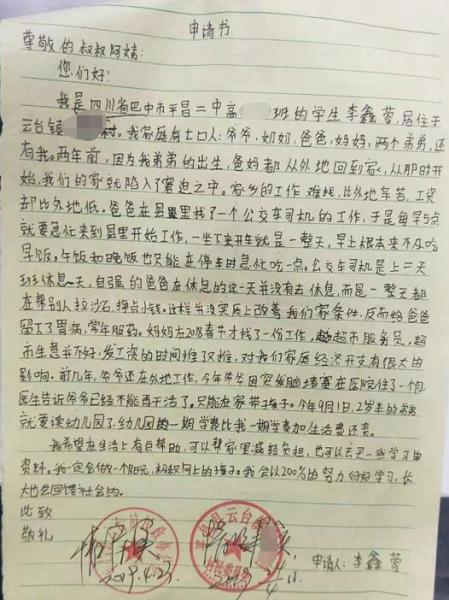 申请书
尊敬的叔叔阿姨:
您们好!
我是四川省巴中市平昌二中高 班的学生李鑫蓉,居住于
云台镇 村。我家庭有七口人:爷爷,奶奶,爸爸,妈妈,两个弟弟,还
有我。两年前,因为我弟弟的出生,爸妈都从外地回到家,从那时开
始,我们的家就陷入了窘迫之中。家乡的工作难找,比外地辛苦,工资
却比外地低。爸爸在县里找了一个公交车司机的工作,于是每早5点
就要急忙来到县里开始工作,一坐下来开车就是一整天,早上根本来不及吃
早饭。午饭和晚饭也只能在停车时急忙吃一点。公交车司机是上三天
班休息一天,自强的爸爸在休息的这一天并没有去休息,而是一整天都
在帮别人拉沙石,挣点小钱。这样并没实质上改善我们家条件,反而给爸爸
留下了胃病,常年服药。妈妈在2018春节才找了一份工作,超市服务员,超
市生意并不好,发工资的时间推了又推,对我们家庭经济开支有很大的
影响。前几年,爷爷还在外地工作,今年爷爷因突发脑堵塞在医院住了一个月
医生告诉爷爷已经不能再干活了。只能在家带孩子。今年9月1日,2岁半的弟弟
就要读幼儿园了,幼儿园的一期学费比我一期学费加生活费还贵。
我希望在生活上有色帮助,可以帮家里减轻负担,也可以去买一些学习的
资料。我一定会做一个阳光,积极向上的孩子。我会以200%的努力好好学习,长
大也会回馈社会的。
此致
敬礼
申请人:李鑫蓉
2019.4.23